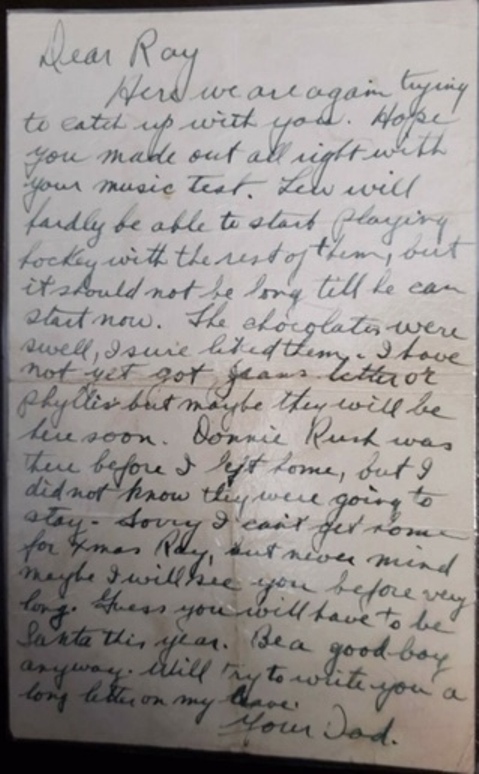 Dear Ray
Here we are again trying
to catch up with you. Hope
you made out all right with
your music test. Lew will
hardly be able to start playing
hockey with the rest of them, but
it should not be long till he can
start now. The chocolates were
swell, I sure liked them. I have
not yet got Jeans letter or
Phyllis but maybe they will be
here soon. Donnie Rush was
there before I left home, but I
did not know they were going to
stay. Sorry I can't get home
for Xmas Ray, but never mind
maybe I will see you before very
long. Guess you will have to be
Santa this year. Be a good boy
anyway. Will try to write you a
long letter on my leave.
Your Dad.